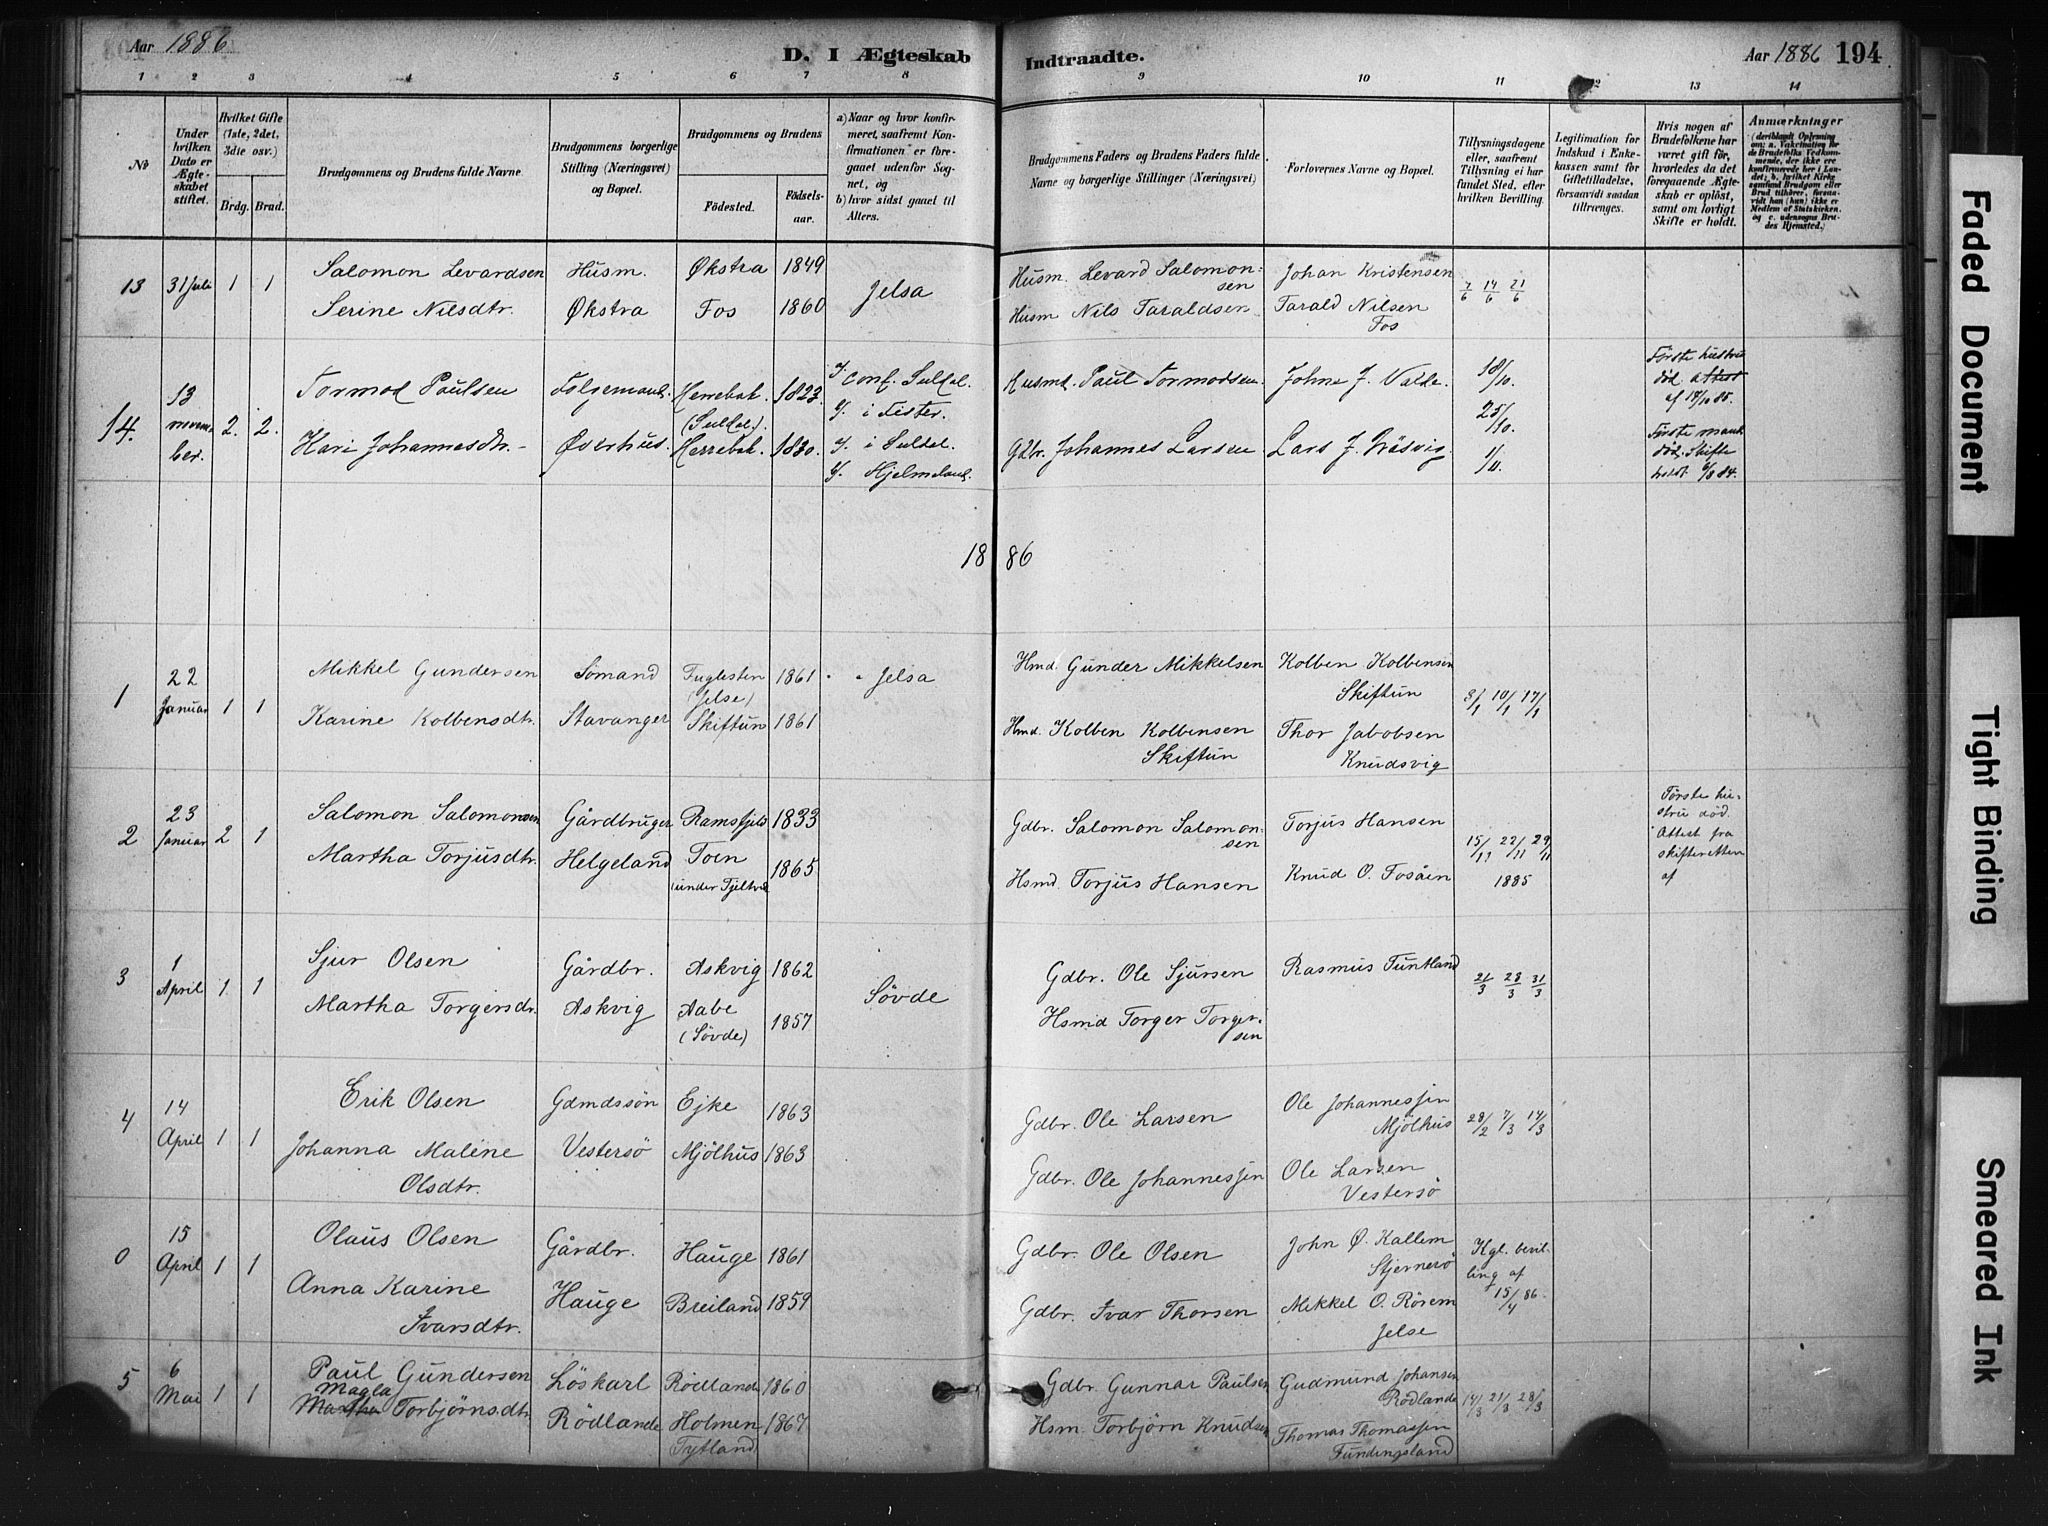 Aar 1886
D. I Ægteskab Indtraadte.
Aar 1886 194
1 2 3 4 5 6 7 8 9 10 11 12 13 14
No
Under hvilken Dato er Ægteskabet stiftet.
Hvilket Gifte (1ste, 2det, 3die osv.)
Brdg. Brud.
Brudgommens og Brudens fulde Navne
Brudgommens borgerlige Stilling (Næringsvei) og Bopæl.
Brudgommens og Brudens
Födested. Födselsaar.
a) Naar og hvor konfirmeret, saafremt Konfirmationen er foregaaet udenfor Sognet, og
b) hvor sidst gaaet til Alters.
Brudgommens Faders og Brudens Faders fulde Navne og borgerlige Stillinger (Næringsvei)
Forlovernes Navne og Bopæl.
Tillysningsdagene eller, saafremt Tillysning ei har fundet Sted, efter hvilken Bevilling.
Legitimation for Indskud i Enkekassen samt for Giftetilladelse, forsaavidt saadan tiltrænges.
Hvis nogen af Brudefolkene har været gift før, hvorledes da det foregaaende Ægteskab er oplöst, samt om lovligt Skifte er holdt.
Anmærkninger
(deriblandt Oplysning om: a. Vakcination for de Brudefolks Vedkommende, der ikke ere konfirmerede her i Landet; b. hvilket Kirkesamfund Brudgom eller Brud tilhörer, forsaavidt han (hun) ikke er Medlem af Statskirken, og c. udensogns Brudes Hjemsted.)
13 31 Juli 1 1 Salomon Levardsen Husm. Økstra 1849 Jelsa Husm. Levard Salomonsen Johan Kristensen 7/6 14/6 21/6
Serine Nilsdtr. Økstra Fos 1860 Husm Nils Taraldsen Tarald Nilsen Fos
14. 13 november. 2. 2. Tormod Paulsen Folgemand. Herrebak. (Suldal.) 1823. conf. Suldal. i Fister. Husmd. Paul Tormodsen. Johne J. Valde. 18/10. Første hustru død. Attest af 18/10 85.
Kari Johannesdtr.- Øverhus. Herrebak. 1830. i Suldal. Hjelmeland. Gdbr. Johannes Larsen Lars J. 25/10. 1/11. Første mand død. Skifte holdt 6/8 84.
1886
1 22 Januar 1 1 Mikkel Gundersen Sömand Fuglesten (Jelse) 1861 Jelsa Hmd. Gunder Mikkelsen Kolben Kolbensen Skiftun 3/1 10/1 17/1
Karine Kolbensdtr. Stavanger Skiftun 1861 Hmd. Kolben Kolbensen Skiftun Thor Jabobsen Knudsvig
2 23 Januar 2 1 Salomon Salomonsen Gårdbruger Ramsfjeld 1833 Gdbr. Salomon Salomonsen Torjus Hansen 15/11 22/11 29/11 1885 Første hustru død. Attest fra skifteretten af
Martha Torjusdtr. Helgeland Toen (under Tjeltvei 1865 Hsmd. Torjus Hansen Knud O. Fosåen
3 1 April 1. 1 Sjur Olsen Gårdbr. Askvig 1862 Sövde Gdbr. Ole Sjursen Rasmus Tuntland 21/3 28/3 31/3
Martha Torgersdr. Askvig Aabe (Sövde) 1857 Hsmd Torger Torgersen
4 14 April 1 1 Erik Olsen Gdmdssön Ejke 1863 Gdbr. Ole Larsen Ole Johannessen Mjölhus 28/2 7/3 14/3
Johanna Maléne Olsdtr. Vestersö Mjölhus 1863 Gdbr. Ole Johannessen Ole Larsen Vestersö
0 15 April 1 1 Olaus Olsen Gårdbr. Hauge 1861 Gdbr. Ole Olsen John Ø. Kallem Stjernerö Kgl. bevilling af 15/4 86.
Anna Karine Ivarsdtr. Hauge Breiland 1859 Gdbr. Ivar Thorsen Mikkel O. Rörem Jelse
5 6 Mai 1 1 Paul Gundersen Löskarl Rödlande 1860 Gdbr. Gunnar Paulsen Gudmund Johansen Rödlande 14/3 21/3 28/3
Magla Martha Torbjörnsdtr. Rödlande Holmen Tytland) 1867 Hsm. Torbjörn Knudsen Thomas Thomassen Fundingsland
Faded Document
Tight Binding
Smeared Ink